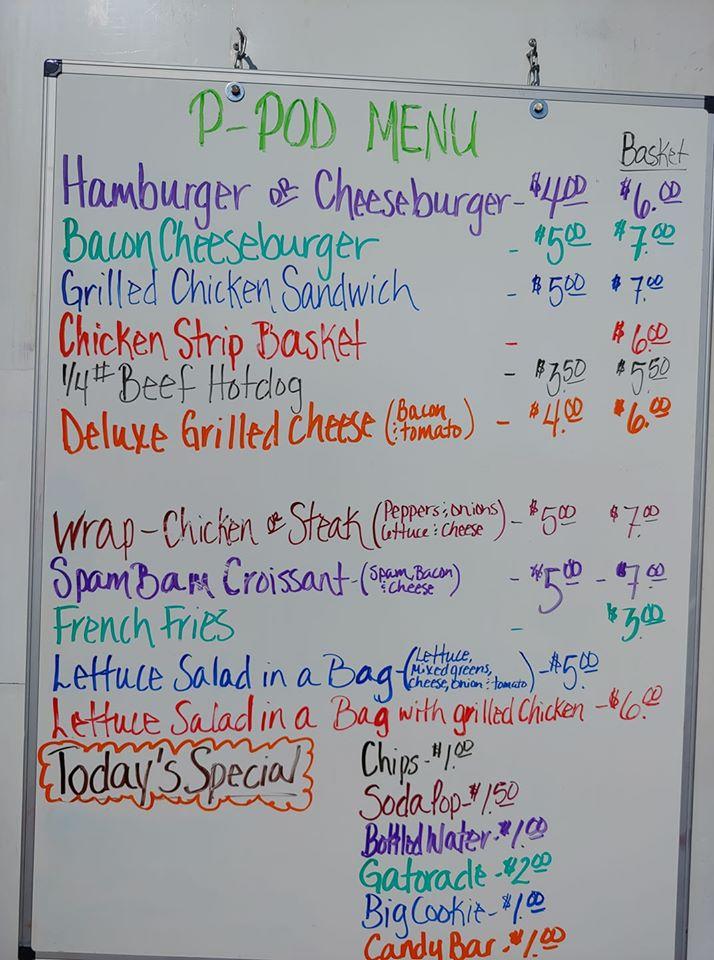 P-POD MENU
Basket
Hamburger or Cheeseburger - $4.00 $6.00
Bacon Cheeseburger - $5.00 $7.00
Grilled Chicken Sandwich - $5.00 $7.00
Chicken Strip Basket - $6.00
1/4# Beef Hotdog - $3.50 $5.50
Deluxe Grilled Cheese (Bacon & tomato) - $4.00 $6.00
Wrap - Chicken or Steak (Peppers & onions Lettuce & Cheese) - $5.00 $7.00
Spam Bam Croissant - (Spam, Bacon & Cheese) - $5.00 - $7.00
French Fries - $3.00
Lettuce Salad in a Bag - (Lettuce, Mixed greens, cheese, onion & tomato) - $5.00
Lettuce Salad in a Bag with grilled Chicken - $6.00
Today's Special
Chips - $1.00
Soda Pop - $1.50
Bottled Water - $1.00
Gatorade - $2.00
Big Cookie - $1.00
Candy Bar - $1.00